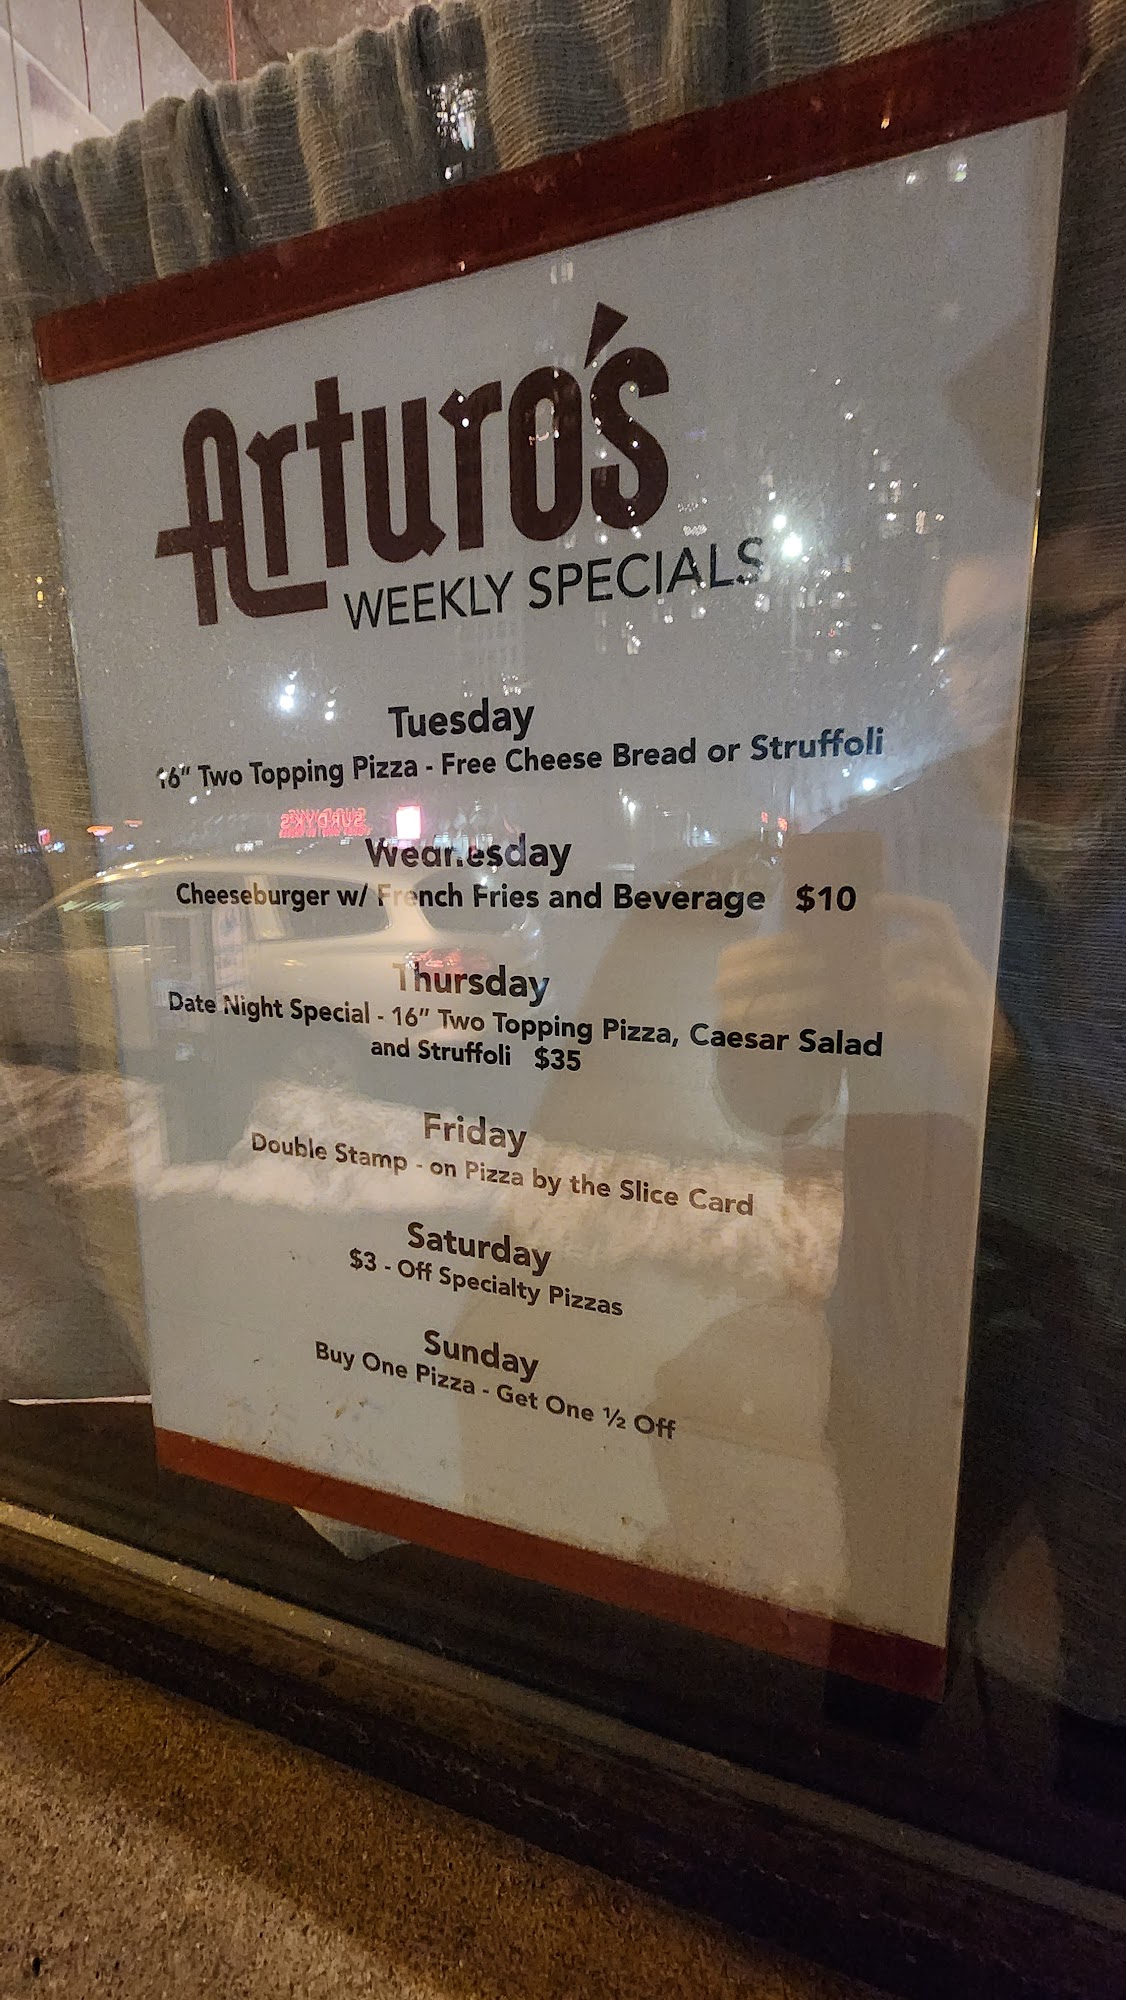 Arturo's
WEEKLY SPECIALS
Tuesday
16" Two Topping Pizza - Free Cheese Bread or Struffoli
Wednesday
Cheeseburger w/ French Fries and Beverage $10
Thursday
Date Night Special - 16" Two Topping Pizza, Caesar Salad
and Struffoli $35
Friday
Double Stamp - on Pizza by the Slice Card
Saturday
$3 - Off Specialty Pizzas
Sunday
Buy One Pizza - Get One ½ Off
SURDYK'S